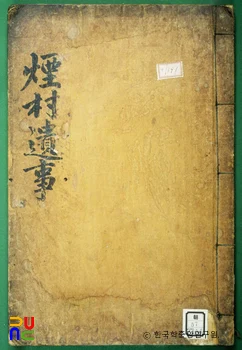 煙村遺事
ⓒ 한국학중앙연구원